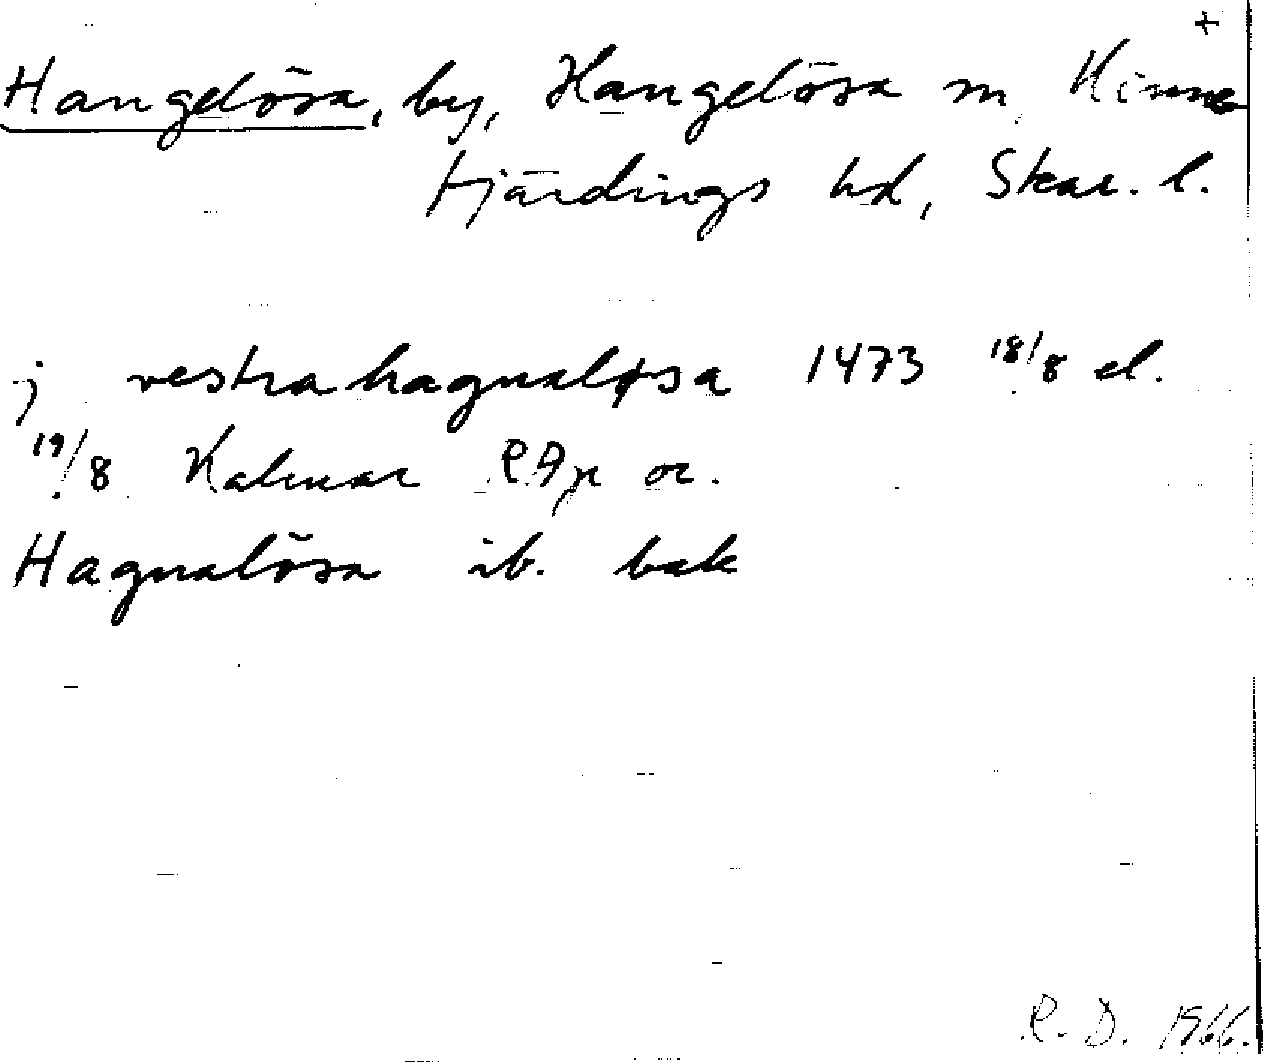 +
Hangelösa, by, Hangelösa sn, Kinne
fjärdings hd, Skar. l.
j vestrahagnaløsa 1473 18/8 el.
19/8 Kalmar RAp or.
Hagnalösa ib. bak
R. D. 1966.